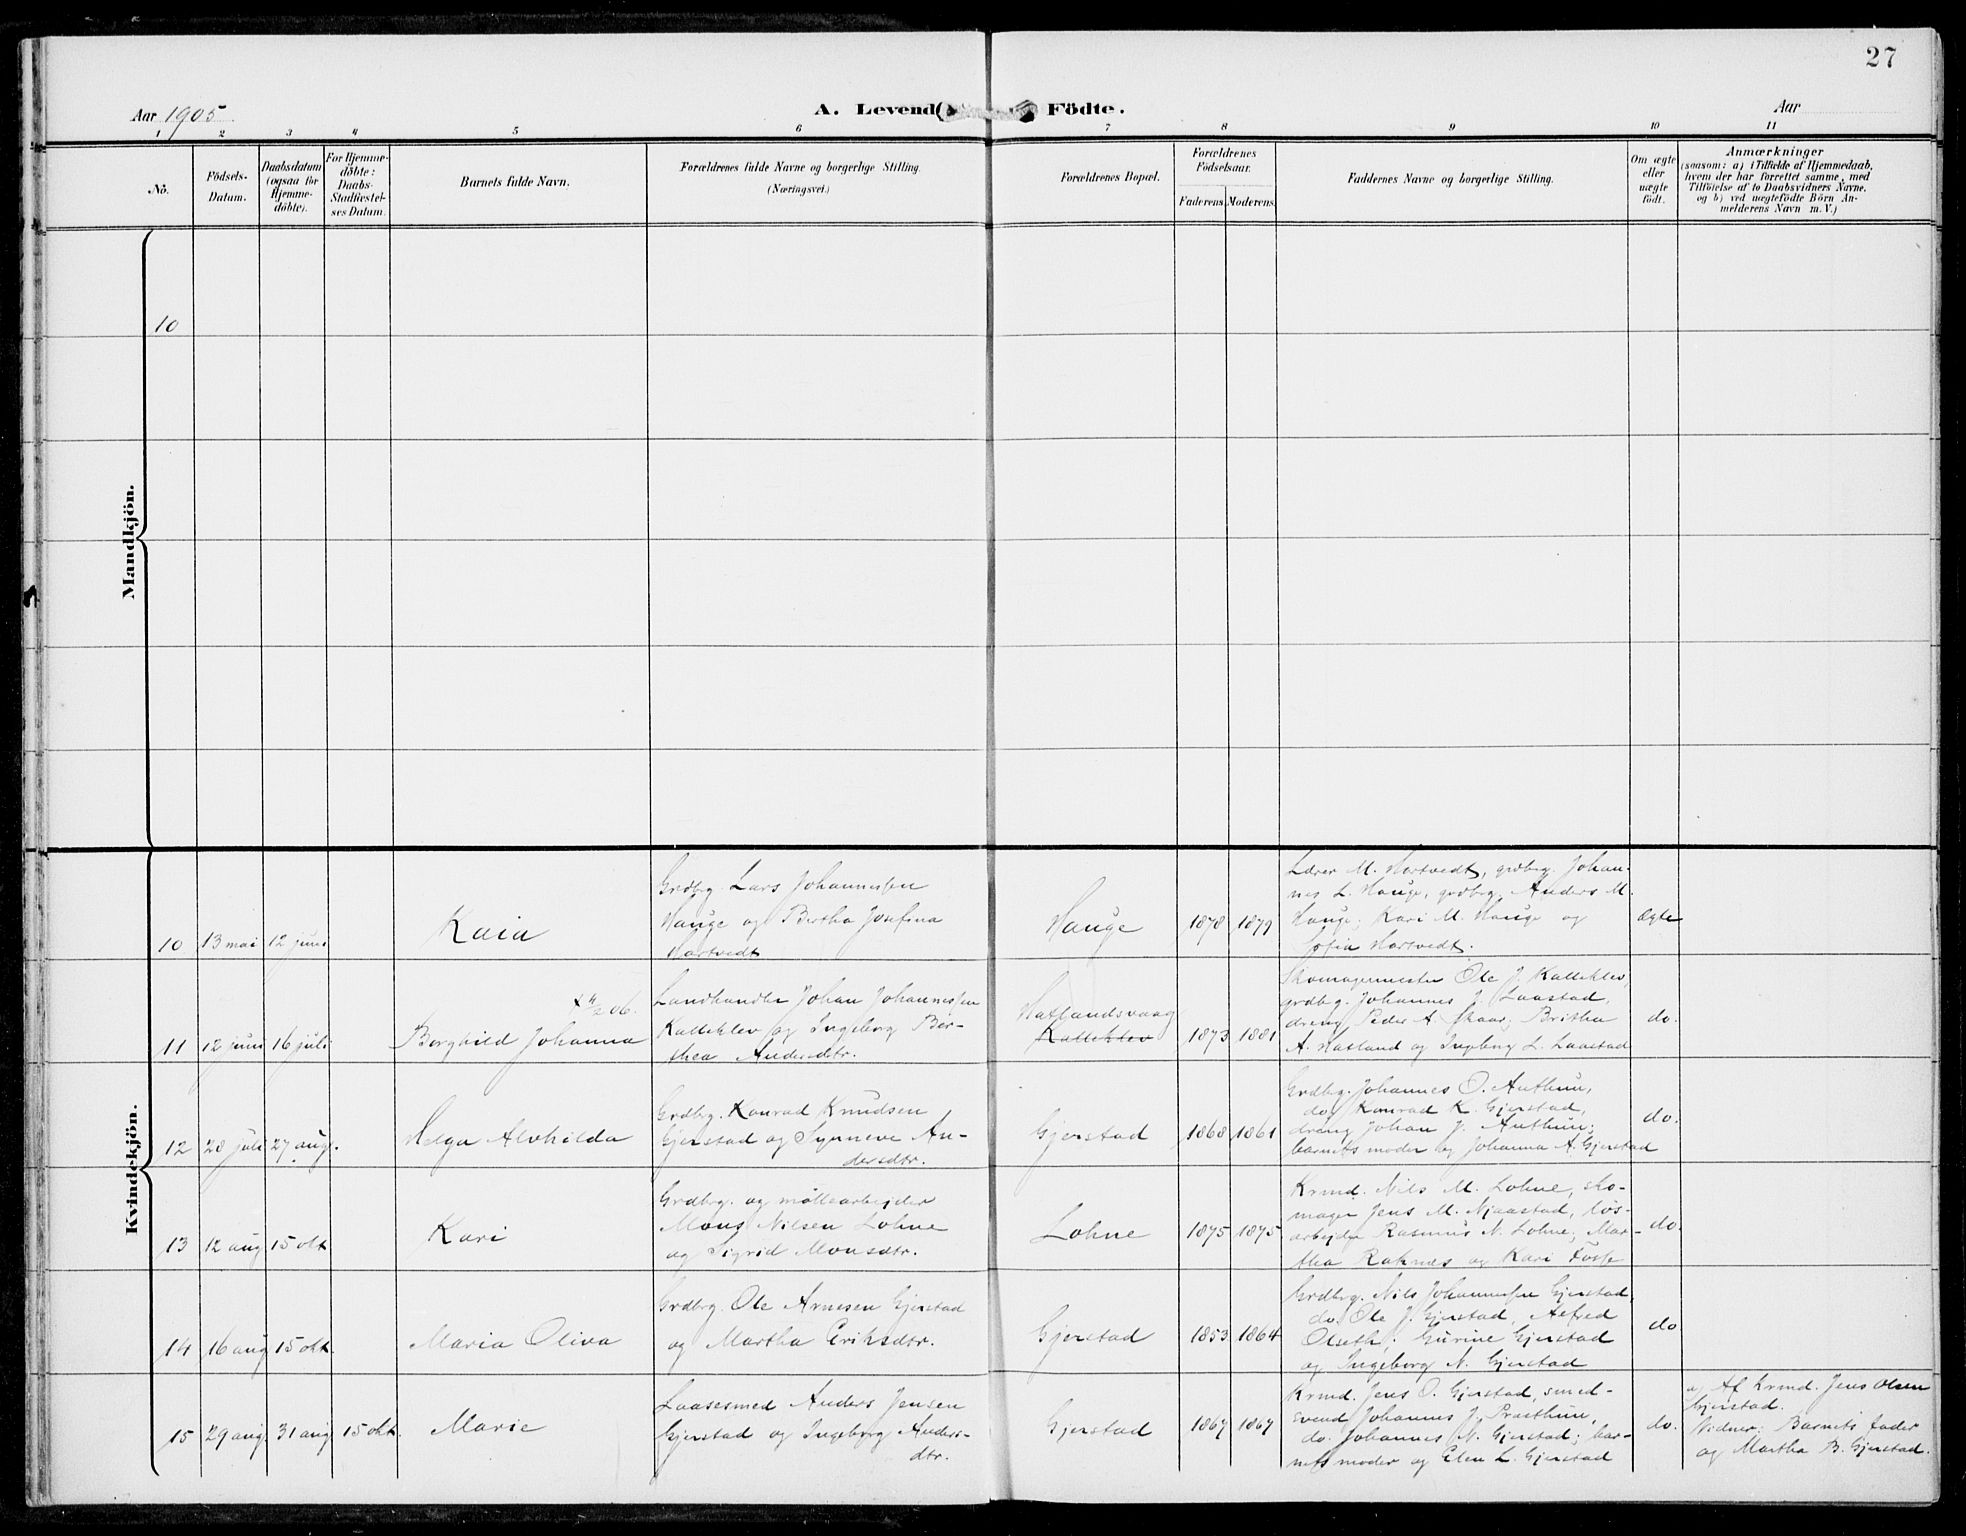 27
Aar 1905.
A. Levende
Födte.
Aar
1 2 3 4 5 6 7 8 9 10 11
No.
Födsels-
Datum.
Daabsdatum
(ogsaa for
Hjemme-
döbte).
For Hjemme-
döbte:
Daabs-
Stadfæstel-
ses Datum.
Barnets fulde Navn.
Forældrenes fulde Navne og borgerlige Stilling.
(Næringsvei.)
Forældrenes Bopæl.
Forældrenes
Födselsaar.
Faderens. Moderens.
Faddernes Navne og borgerlige Stilling.
Om ægte
eller
uægte
født.
Anmærkninger
(saasom: a) i Tilfælde af Hjemmedaab,
hvem der har forrettet samme, med
Tilföielse af to Daabsvidners Navne,
og b) ved uægtefödte Börn An-
melderens Navn m. V.)
Mandkjön.
10
Kvindekjön.
10
13 mai
12 juni
Kaia
Grdbrg. Lars Johannessen
Hauge og Bertha Josefina
Hartvedt
Hauge
1878
1879
Lærer M. Hartvedt, grdbrg. Johan-
nes L. Hauge, grdbrg. Anders M.
Hauge; Kari M. Hauge og
Sofia Hartvedt.
Ægte
11
12 juni
16 juli
4/2 06.
Borghild Johanna
Landhandler Johan Johannessen
Kalleklev og Ingeborg Ber-
thea Andersdtr.
Hatlandsvaag
Kalleklev
1873
1881
Skomagermester Ole J. Kalleklev,
grdbg. Johannes J. Laastad,
dreng Peder A. Skaar; Britha
A. Hatland og Ingeborg L. Laastad
do.
12
28 juli
27 aug.
Helga Alvhilda
Grdbrg. Konrad Knudsen
Gjerstad og Synneve An-
dersdtr.
Gjerstad
1868
1861
Grdbg. Johannes O. Authun,
do. Konrad K. Gjerstad,
dreng Johan J. Authun;
barnets moder og Johanna A. Gjerstad
do.
13
12 aug
15 okt
Kari
Grdbrg. og møllearbejder
Mons Nilsen Lohne
og Sigrid Monsdtr.
Lohne
1875
1875
Krmd. Nils M. Lohne, sko-
mager Jens M. Njaastad, løs-
arbejder Rasmus N. Lohne; Mar-
tha Raknæs og Kari Fosse
do.
14
16 aug
15 okt.
Maria Oliva
Grdbrg. Ole Arnesen Gjerstad
og Martha Eriksdtr.
Gjerstad
1853
1864
Grdbrg. Nils Johannessen Gjerstad,
do. Ole J. Gjerstad, Alfred
Olseth; Gurine Gjerstad
og Ingeborg N. Gjerstad
do
15
29 aug.
31 aug
15 okt.
Marie
Laasesmed Anders Jensen
Gjerstad og Ingeborg Anders-
dtr.
Gjerstad
1867
1867
Krmd. Jens O. Gjerstad, smed-
svend Johannes J. Præsthun,
do. Johannes N. Gjerstad; bar-
nets moder og Elen L. Gjerstad
do.
a, Af krmd. Jens Olsen
Gjerstad.
Vidner: Barnets fader
og Martha B. Gjerstad.